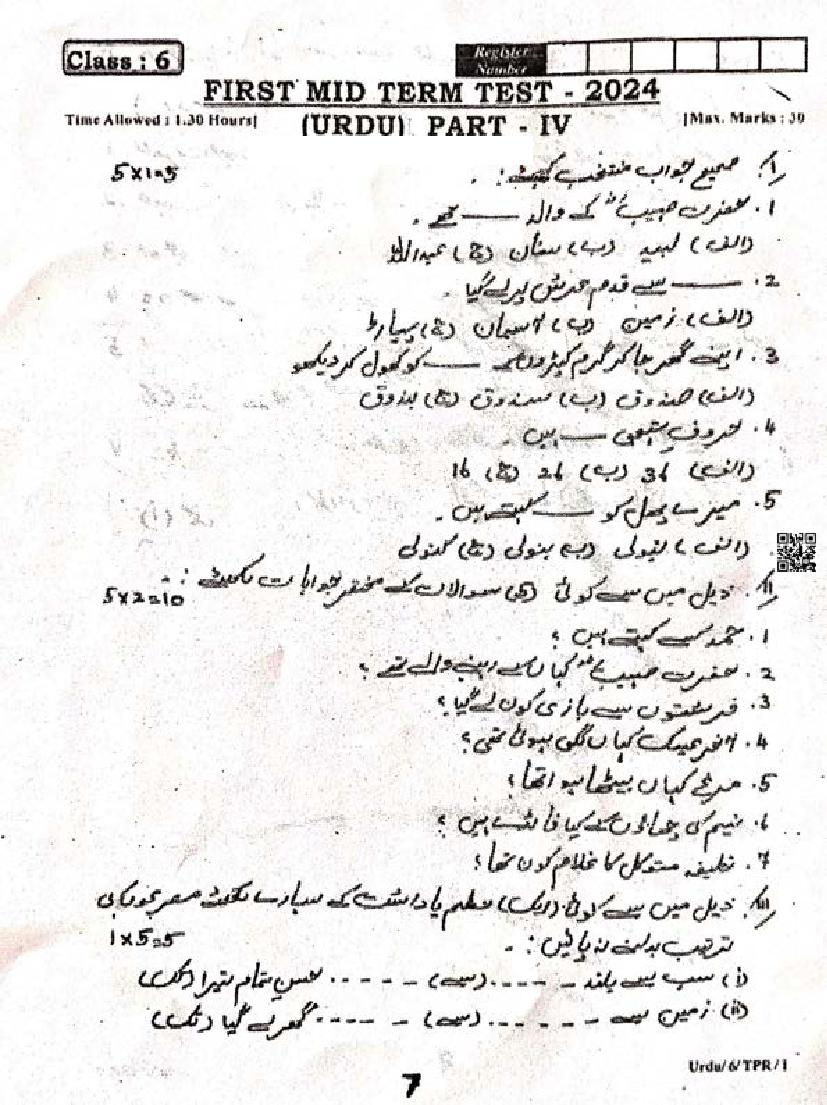 Class : 6
Register Number
FIRST MID TERM TEST - 2024
Time Allowed : 1.30 Hours]
(URDU) PART - IV
[Max. Marks : 30
I. صحیح جواب منتخب کیجئے : 5x1=5
1. حضرت حبیبؓ کے والد —— تھے ۔
(الف) لبید (ب) سنان (ج) عبداللہ
2. —— سے قدم عرش پر لے گیا ۔
(الف) زمین (ب) آسمان (ج) پہاڑ
3. اپنے گھر جا کر گرم کپڑوں کے —— کو کھول کر دیکھو
(الف) صندوق (ب) سندوق (ج) بندوق
4. حروفِ —— ہیں ۔
(الف) 36 (ب) 26 (ج) 16
5. —— کو —— کہتے ہیں ۔
(الف) نبولی (ب) بنولی (ج) کنولی
II. ذیل میں سے کوئی سوالات کے مختصر جوابات لکھئے : 5x2=10
1. حمد کسے کہتے ہیں ؟
2. حضرت حبیبؓ کہاں کے رہنے والے تھے ؟
3. فرشتوں سے بازی کون لے گیا ؟
4. آخر عینک کہاں لگی ہوئی تھی ؟
5. مرغ کہاں بیٹھا ہوا تھا ؟
6. نیم کی چھاؤں کے کیا فائدے ہیں ؟
7. خلیفہ متوکل کا غلام کون تھا ؟
III. ذیل میں سے کوئی (ایک) نظم یادداشت کے سہارے لکھئے مصرعوں کی
ترتیب بدلنے نہ پائیں : 1x5=5
(i) سب سے بلند - - - - - (سے) - - - - - حسنِ تمام تیرا (تک)
(ii) زمین سے - - - - - - (سے) - - - - - گھر لے گیا (تک)
Urdu/6/TPR/1
7